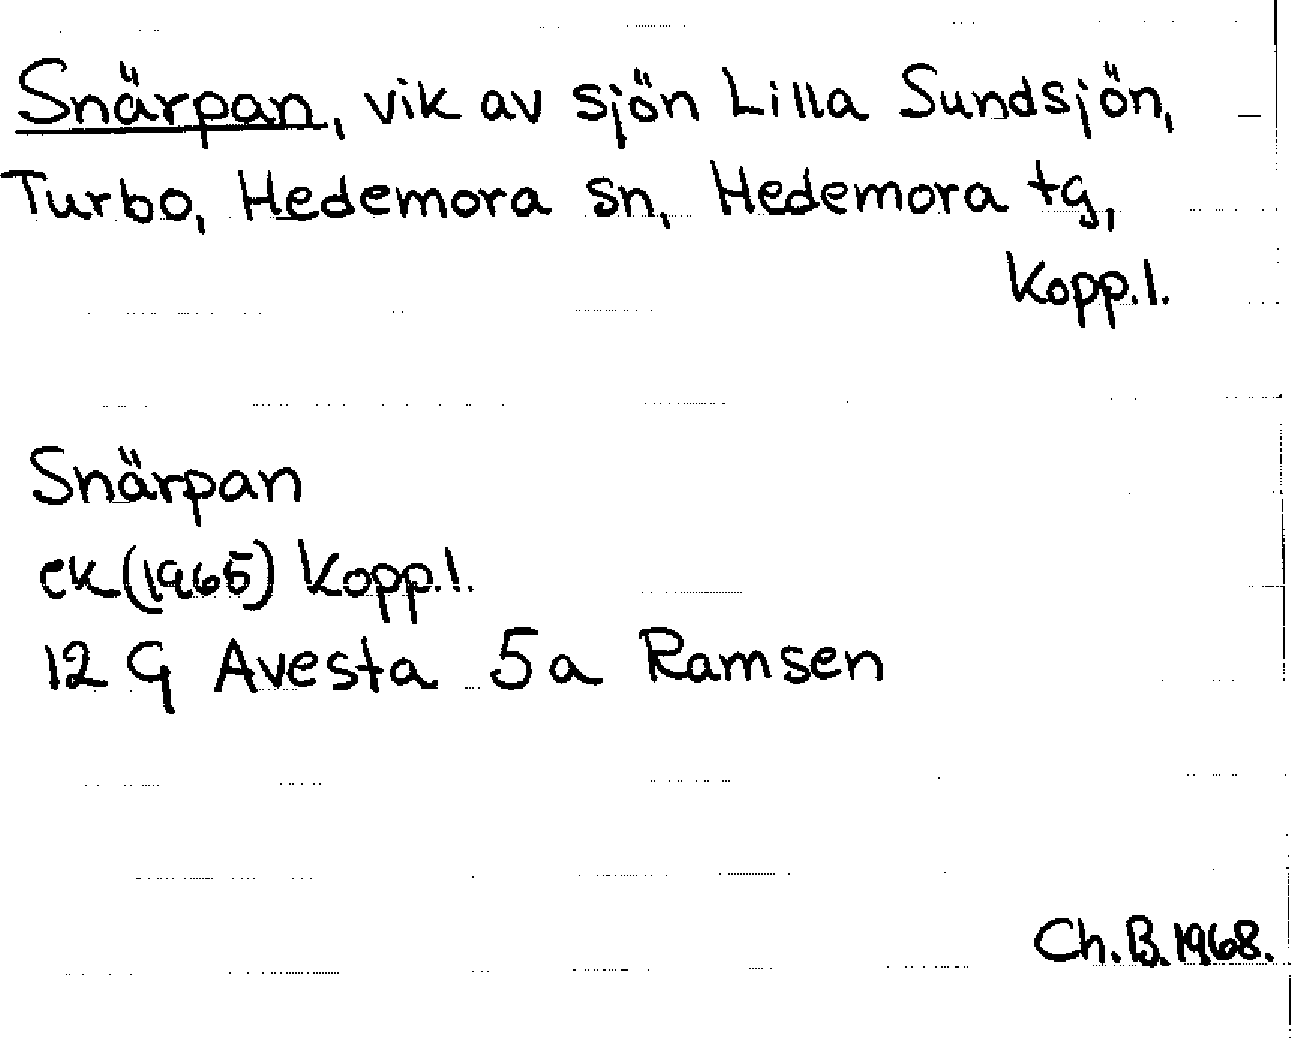 Snärpan, vik av sjön Lilla Sundsjön,
Turbo, Hedemora sn, Hedemora tg,
Kopp.l.
Snärpan
ek (1965) Kopp.l.
12 G Avesta 5a Ramsen
Ch.B.1968.